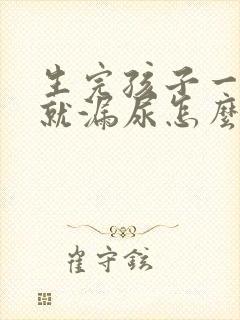 生完孩子一
就漏尿怎麼
崔守鉉